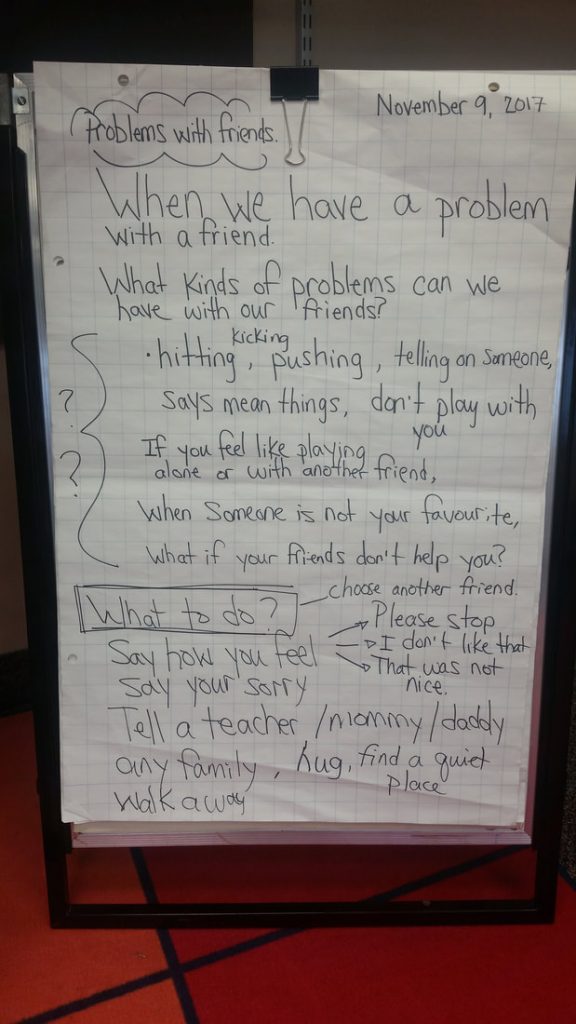 November 9, 2017
Problems with friends.
When we have a problem
with a friend.
What kinds of problems can we
have with our friends?
kicking
• hitting, pushing, telling on someone,
says mean things, don't play with
you
?
If you feel like playing
alone or with another friend,
?
When Someone is not your favourite,
What if your friends don't help you?
choose another friend.
What to do?
Please stop
Say how you feel
I don't like that
That was not
nice.
Say your sorry
Tell a teacher/mommy/daddy
any family, hug, find a quiet
place
walk away